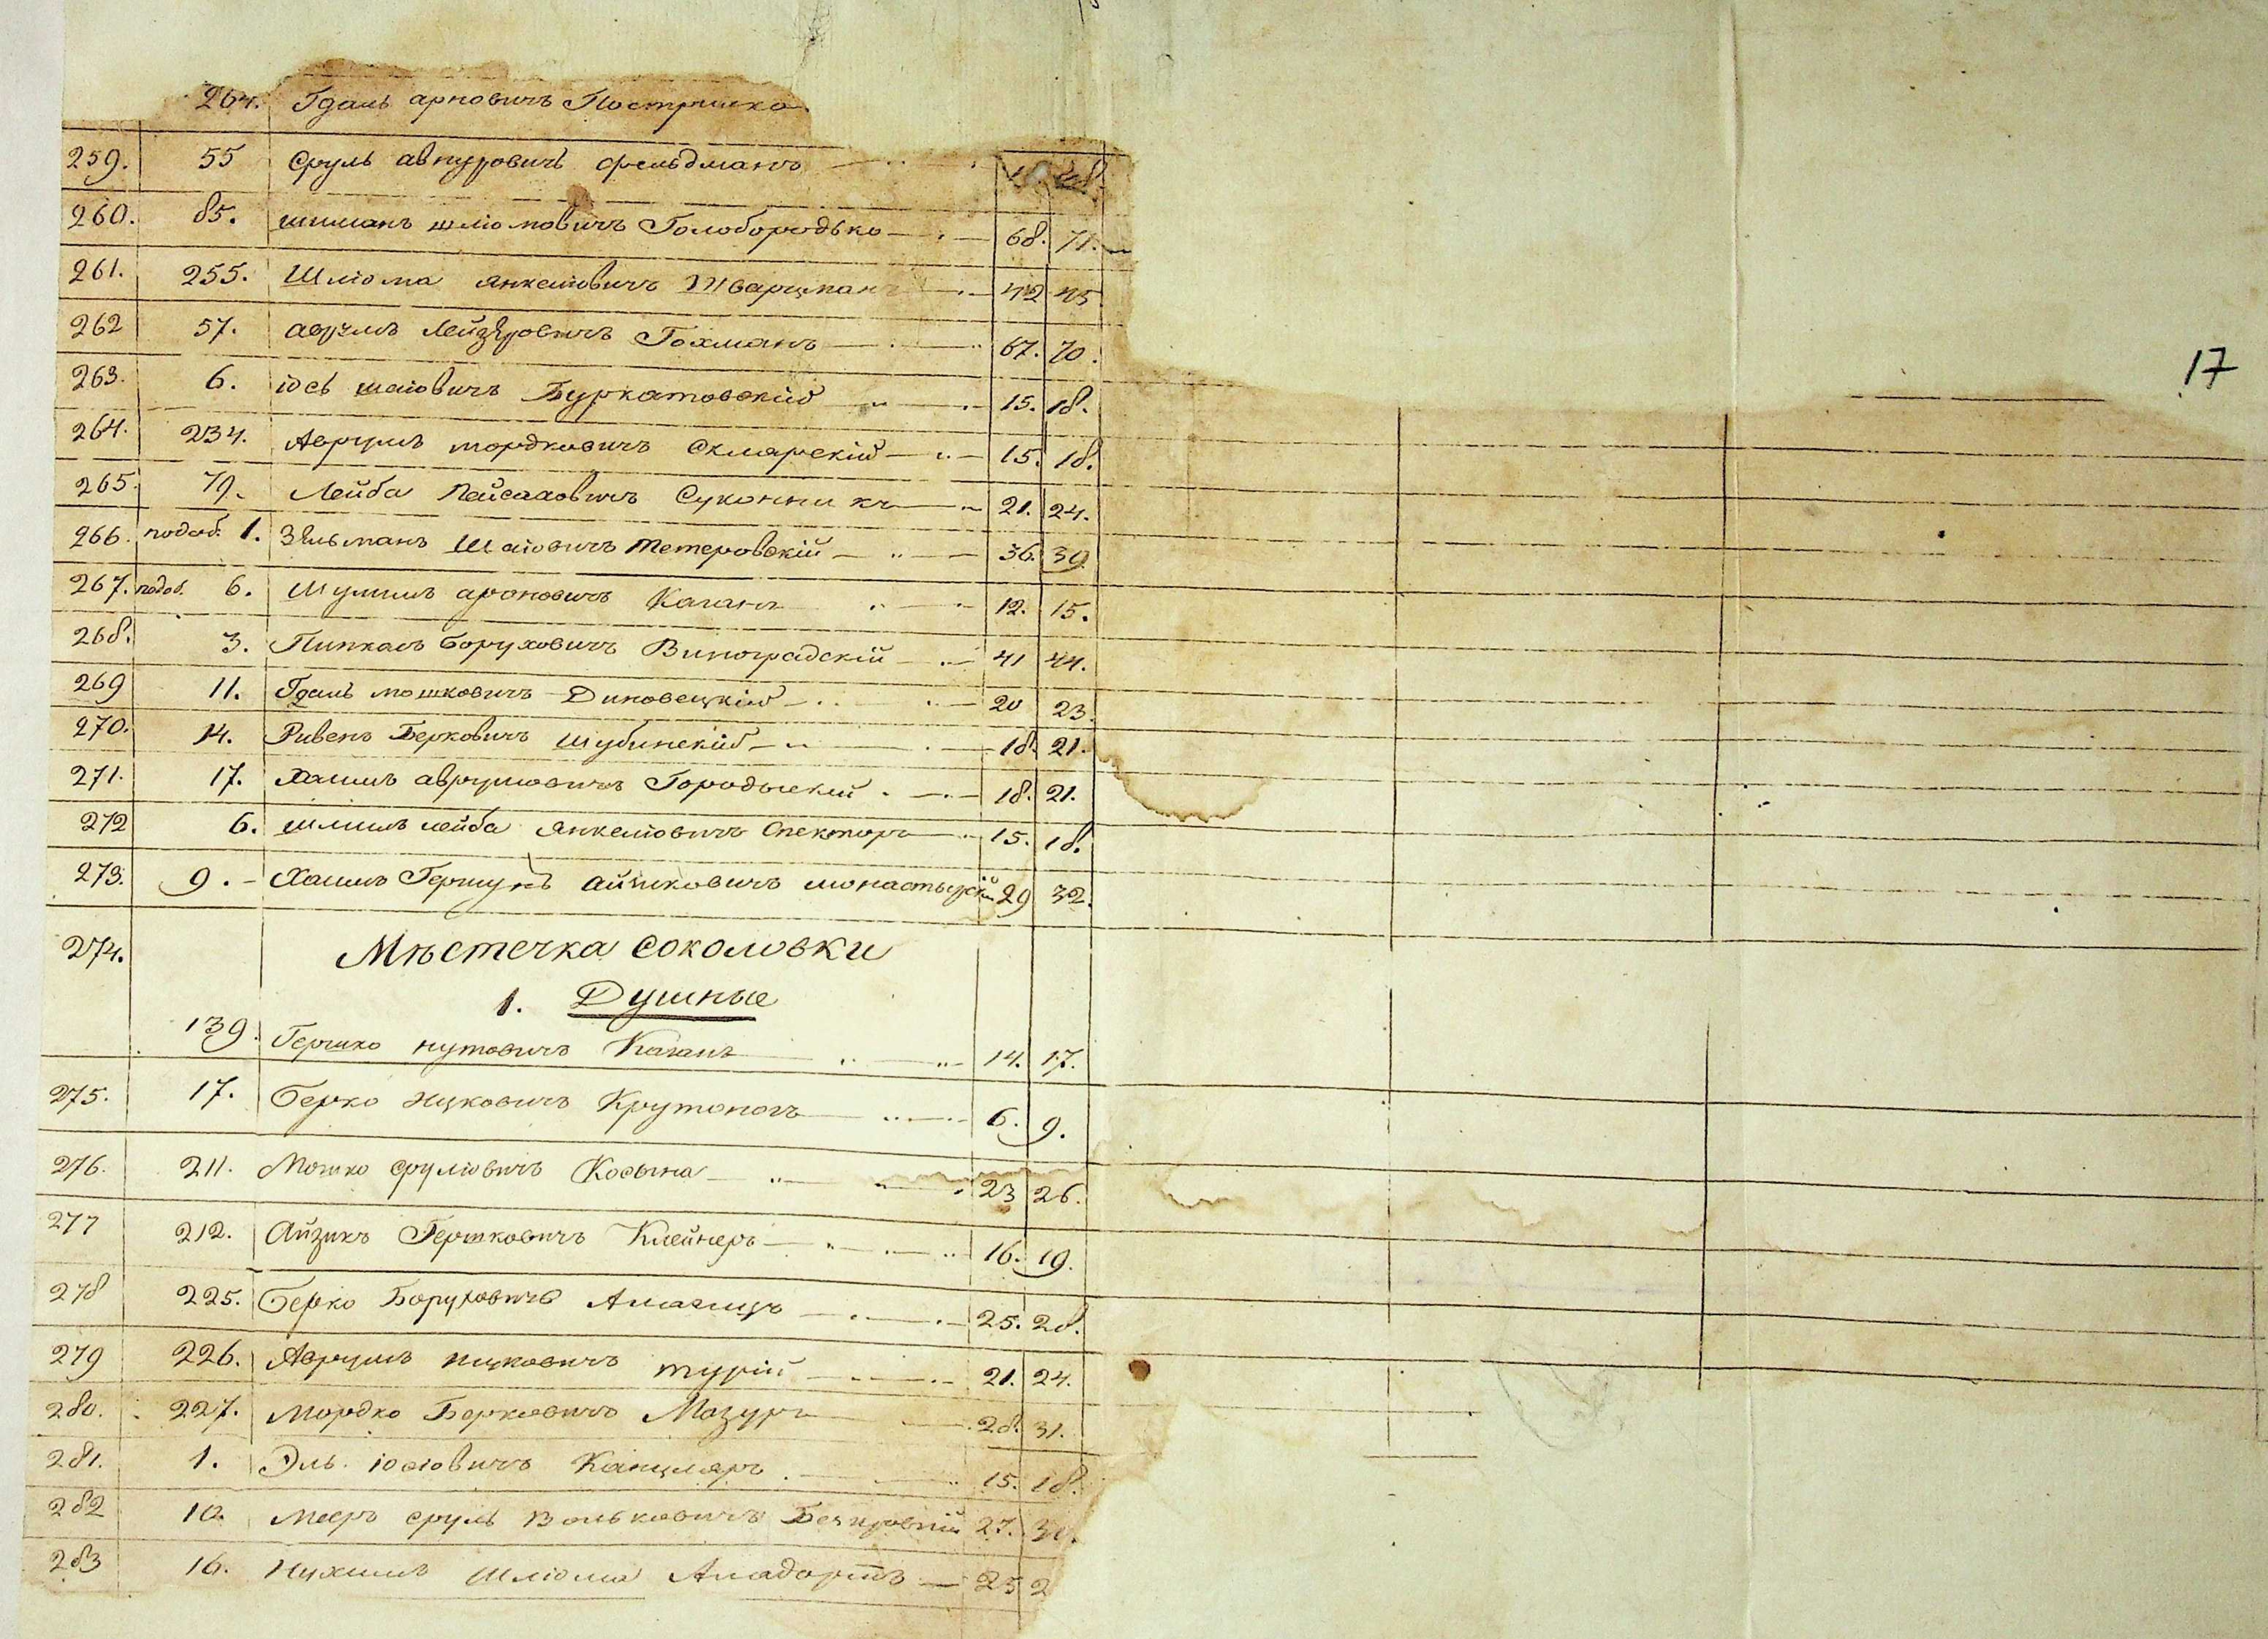 264. Гдаль арновичъ Пострилко
259. 55 Сруль авнуровичъ фельдманъ
260. 85. шиманъ шліомовичъ Голобородько 68. 71.
261. 255. Шліома янкеліовичъ Шварцманъ 42 45.
262 57. аврумъ Лейзеровичъ Гохманъ 67. 70.
17
263. 6. іось шаіовичъ Буркатовскій 15. 18.
264. 234. Аврумъ мордковичъ Склярскій 15. 18.
265. 79. Лейба Пейсаховичъ Суконникъ 21. 24.
266. подоб. 1. Зельманъ Шаіовичъ Тетеровскій 36. 39
267. подоб. 6. Шулимъ ароновичъ Каганъ 12. 15.
268. 3. Пинкасъ боруховичъ Виноградскій 41 44.
269 11. Гдаль мошковичъ Диновецкій 20 23.
270. 14. Ривенъ Берковичъ Шубинскій 18. 21.
271. 17. Хаимъ аврумовичъ Городыскій 18. 21.
272 6. шлиомъ лейба янкеліовичъ Спекторъ 15. 18.
273. 9. Хаимъ Гершунъ айзиковичъ монастырскій 29 32.
274. Мѣстечка соколовки
1. Душные
139. Гершко нутовичъ Каганъ 14. 17.
275. 17. Берко ицковичъ Крутоногъ 6. 9.
276. 211. Мошко сруліовичъ Косына 23 26.
277 212. Айзикъ Гершковичъ Клейнеръ 16. 19.
278 225. Берко Боруховичъ 25. 28.
279 226. Аврумъ ицковичъ турій 21. 24.
280. 227. Мордко Берковичъ Мазуръ 28. 31.
281. 1. Эль іосіовичъ Канцляръ 15. 18.
282 10. мееръ сруль вольковичъ 27. 30.
283 16. Нухимъ Шліома 25 2